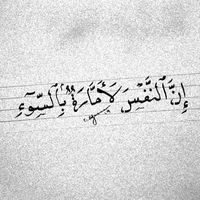 إِنَّ ٱلنَّفْسَ لَأَمَّارَةٌۢ بِٱلسُّوٓءِ